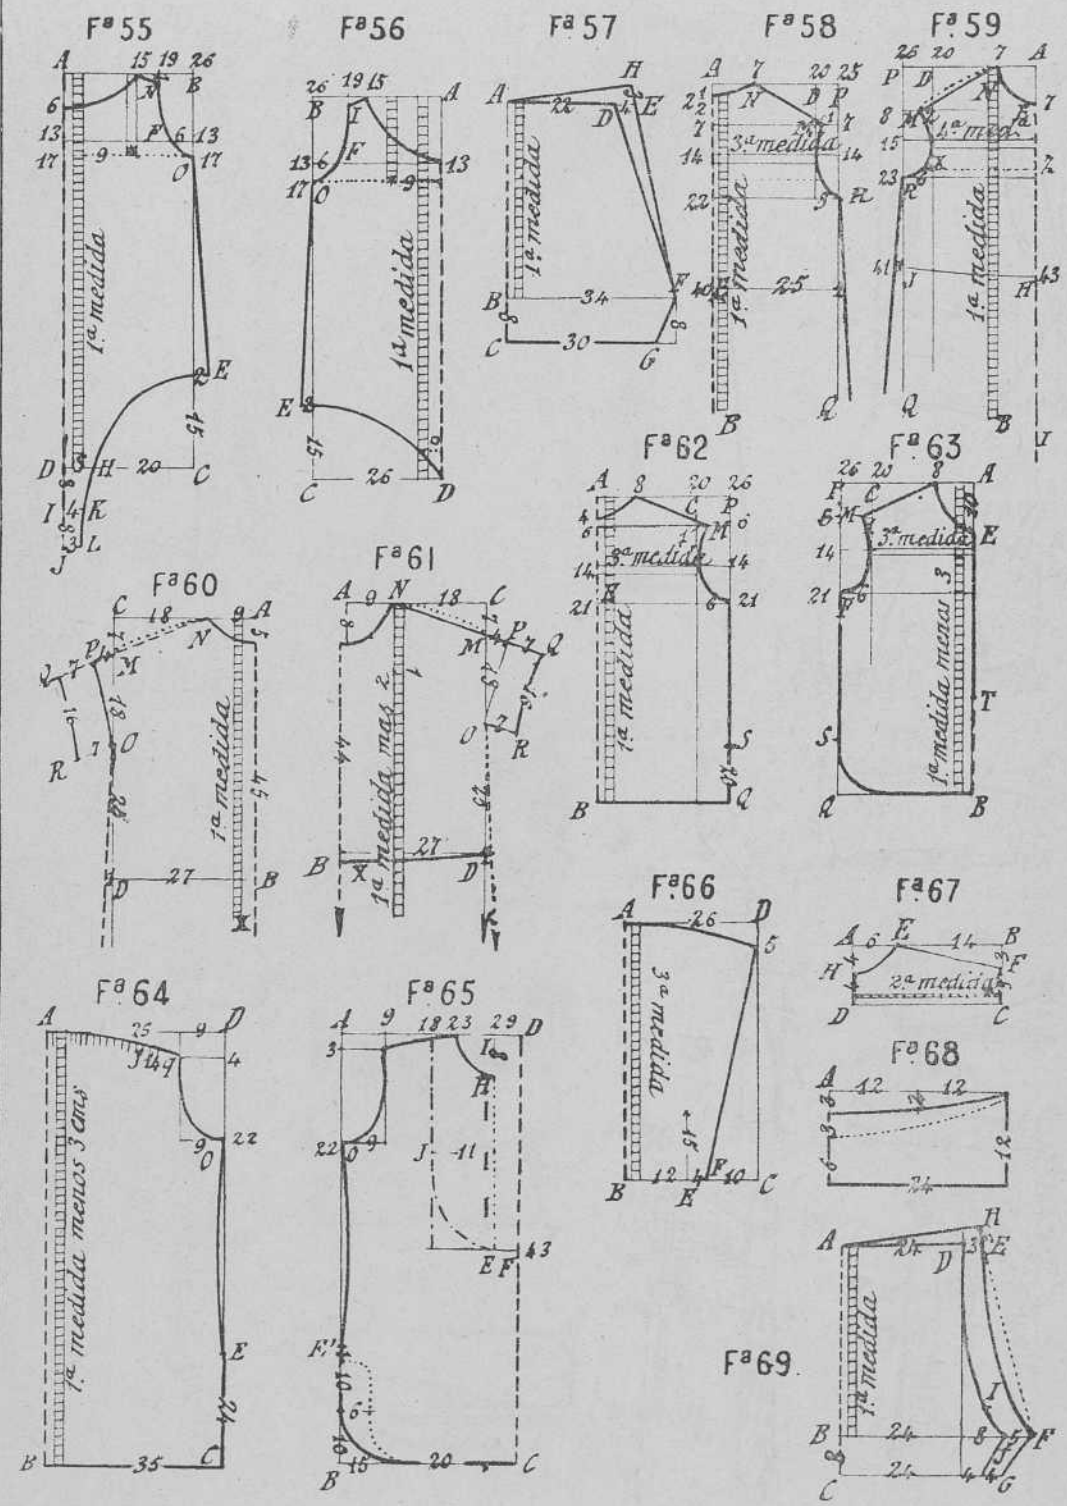 Fª 55
A 15 19 26
B
6 N
13 F 6 13
17 9 * 17
O
1.ª medida
2 E
15
D 5 H 20 C
8
I 4 K
8
J 3 L
Fª 56
26 19 15 A
B I
13 6 F 13
17 9
O
1ª medida
E 2
15
C 26 D
Fª 57
H
A 22 4 E
D
1.ª medida
B 34 F
8 8
C 30 G
Fª 58
A 7 20 25
2 1 N D P
2
7 M 1 7
14 3.ª medida 14
22 5 R
1.ª medida
40 25
B Q
Fª 59
26 20 7 A
P D N
8 M 2 7
15 4.ª med.ª
23 R 6 X
1.ª medida
41 J H 43
Q B I
Fª 60
C 18 9 A
7 N 5
P 4 M
Q 7
16 18
R 7 O
1ª medida
25 45
D 27 B
X
Fª 61
A 9 N 18 C
8 7
M 4 P 7 Q
18 16
O 7 R
44 1ª medida mas 2 25
B X 27 D
Fª 62
A 8 20 26
C P
4
6 1 M 6
14 3.ª medida 14
21 6 21
1.ª medida
S
20
B Q
Fª 63
26 20 8 A
P C
6 M 10
14 3.ª medida E
21 6
1.ª medida menos 3
T
S
Q B
Fª 64
A 25 9 D
J 14 9 4
9 22
O
1.ª medida menos 3 cms
E
24
B 35 C
Fª 65
A 9 18 23 29 D
3 I 8
H
22 O 9
J 11
E F 43
E'
10
6
10
B 15 20 C
Fª 66
A 26 D
5
3ª medida
15
B 12 4 F 10 C
E
Fª 67
A 6 E 14 B
4 3 F
H
4 2.ª medida
D C
Fª 68
A 12 12
3 2
3
6 12
24
Fª 69
H
A 24 3 E
D
1.ª medida
I
B 24 8 5 F
8
C 24 4 4 G